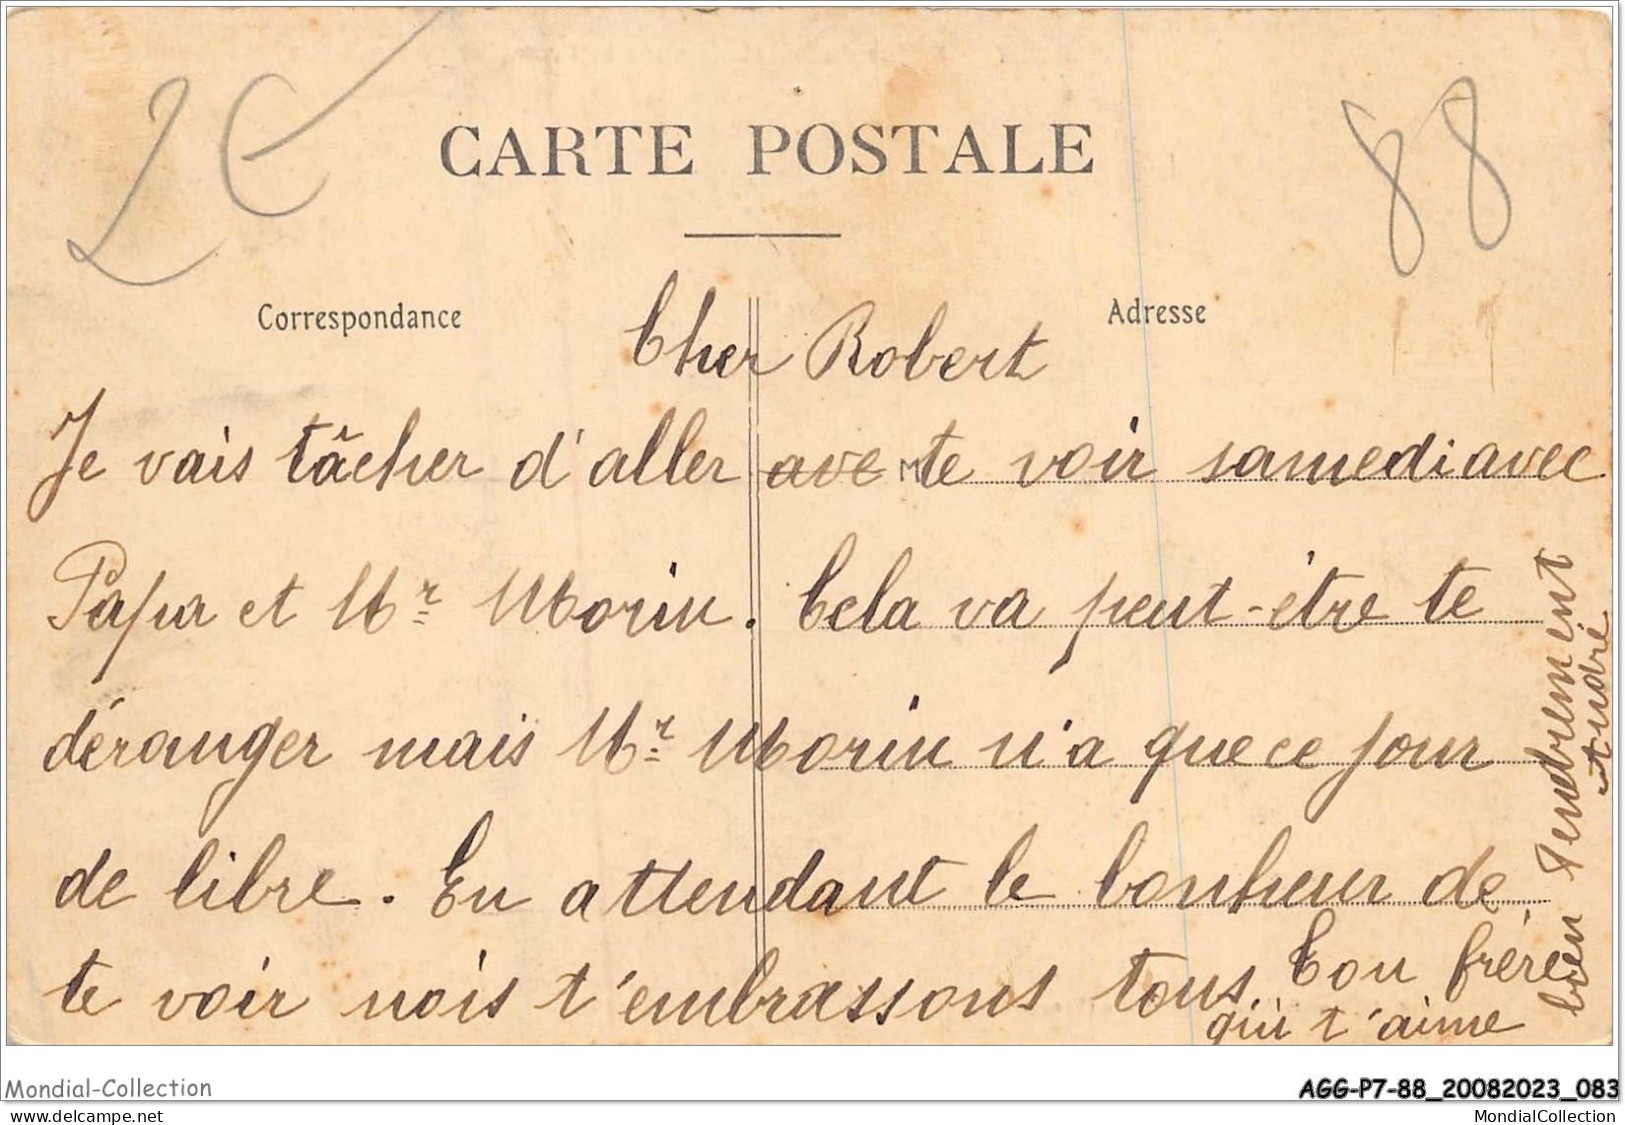 2€
88
CARTE POSTALE
Correspondance
Adresse
Cher Robert
Je vais tâcher d'aller ave M te voir samedi avec
Papa et Mr Morin. Cela va peut-être te
déranger mais Mr Morin n'a que ce jour
de libre. En attendant le bonheur de
te voir nois t'embrassons tous. Ton frère
qui t'aime
bien tendrement
André
Mondial-Collection
AGG-P7-88_20082023_083
www.delcampe.net
MondialCollection